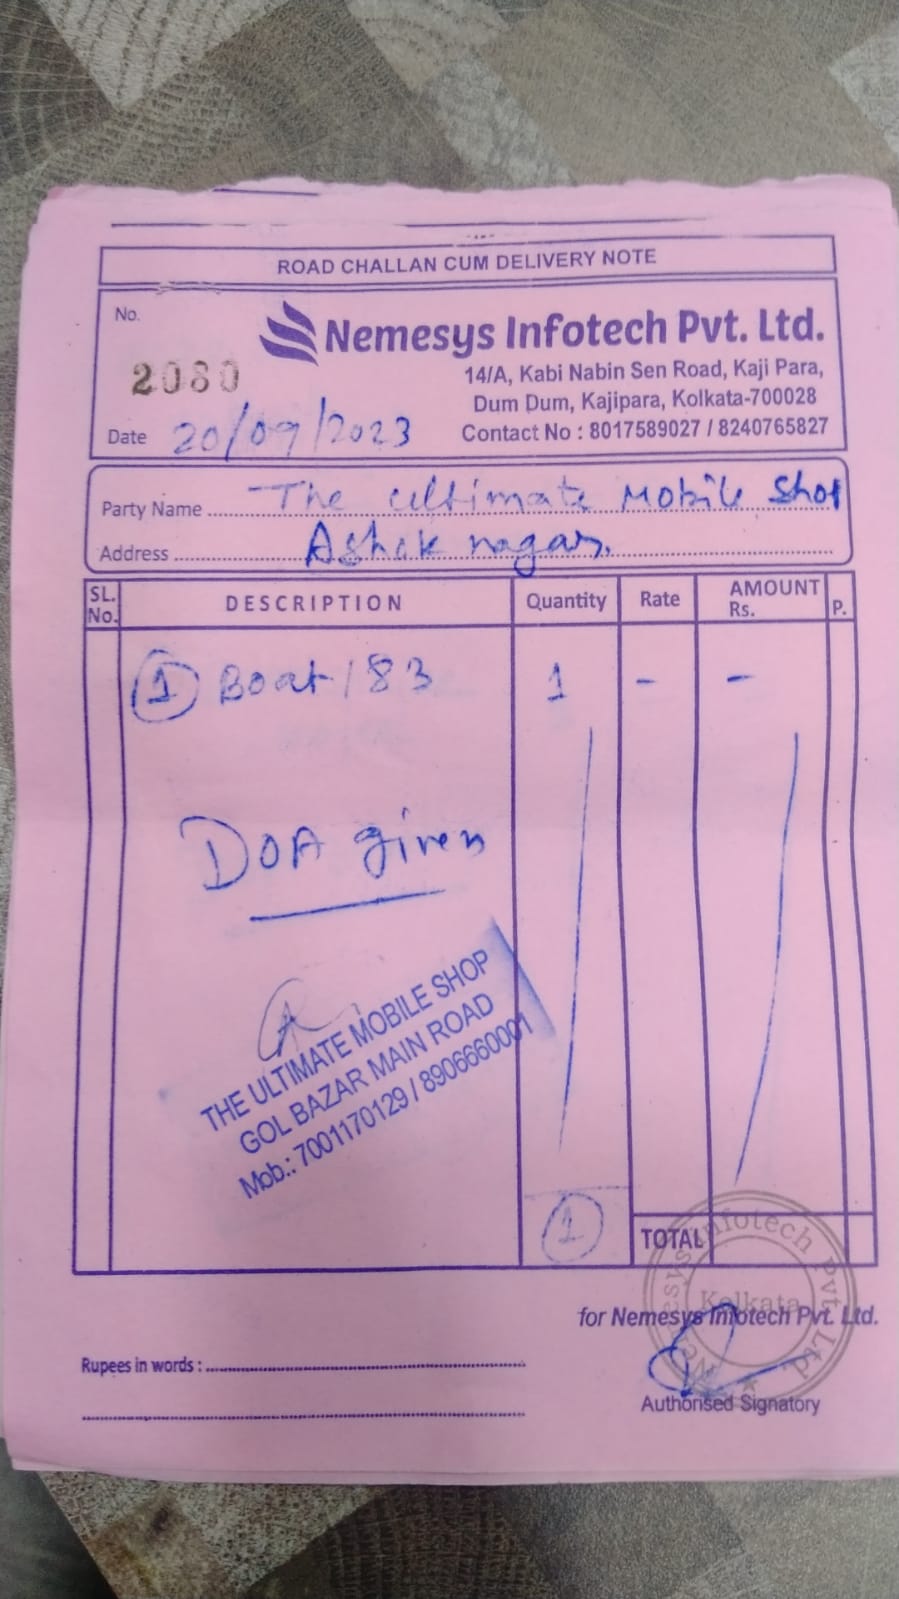 ROAD CHALLAN CUM DELIVERY NOTE
No.
2080
Nemesys Infotech Pvt. Ltd.
14/A, Kabi Nabin Sen Road, Kaji Para,
Dum Dum, Kajipara, Kolkata-700028
Date 20/09/2023
Contact No : 8017589027 / 8240765827
Party Name The Ultimate Mobile Shop
Address Ashok nagar.
SL. No. DESCRIPTION Quantity Rate AMOUNT Rs. P.
1 Boat 183 1 - -
DOA given
THE ULTIMATE MOBILE SHOP
GOL BAZAR MAIN ROAD
Mob.: 7001170129 / 8906660001
1 TOTAL
Nemesys Infotech Pvt. Ltd.
Kolkata
for Nemesys Infotech Pvt. Ltd.
Rupees in words :
Authorised Signatory